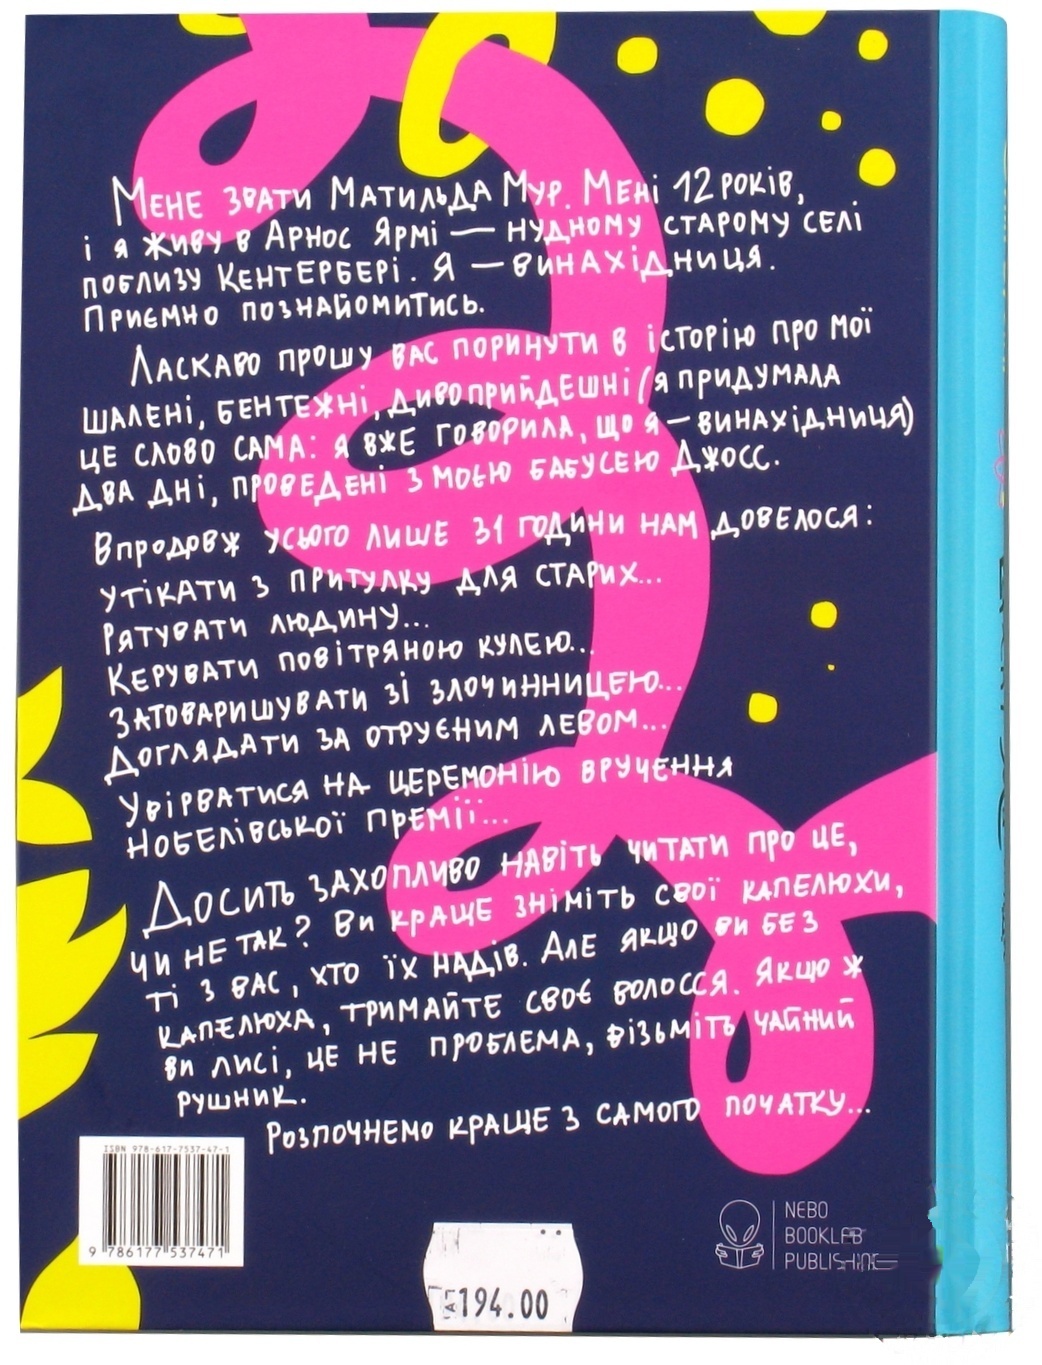 Мене звати Матильда Мур. Мені 12 років,
і я живу в Арнос Ярмі — нудному старому селі
поблизу Кентербері. Я — винахідниця.
Приємно познайомитись.
Ласкаво прошу вас поринути в історію про мої
шалені, бентежні, дивоприйдешні (я придумала
це слово сама: я вже говорила, що я — винахідниця)
два дні, проведені з моєю бабусею Джосс.
Впродовж усього лише 31 години нам довелося:
утікати з притулку для старих...
Рятувати людину...
Керувати повітряною кулею...
Затоваришувати зі злочинницею...
Доглядати за отруєним левом...
Увірватися на церемонію вручення
Нобелівської премії...
Досить захопливо навіть читати про це,
чи не так? Ви краще зніміть свої капелюхи,
ті з вас, хто їх надів. Але якщо ви без
капелюха, тримайте своє волосся. Якщо ж
ви лисі, це не проблема, візьміть чайний
рушник.
Розпочнемо краще з самого початку...
ISBN 978-617-7537-47-1
9 786177 537471
NEBO
BOOKLAB
PUBLISHING
194.00